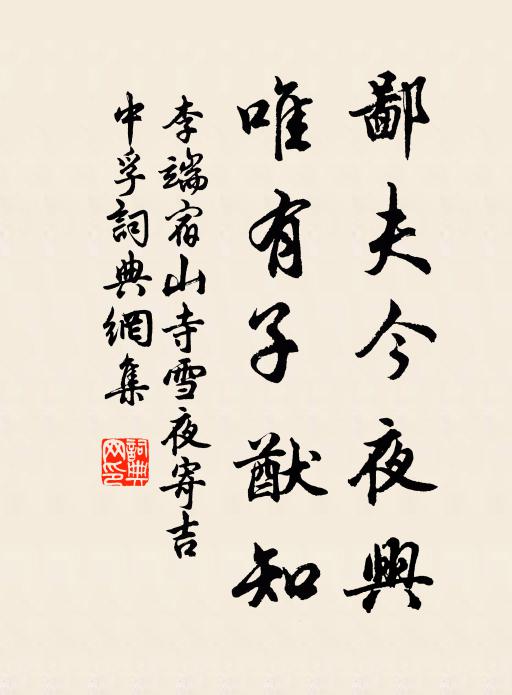 鄙夫今夜興
唯有子猷知
李端宿山寺雪夜寄吉
中孚詞典網集
詞典网印